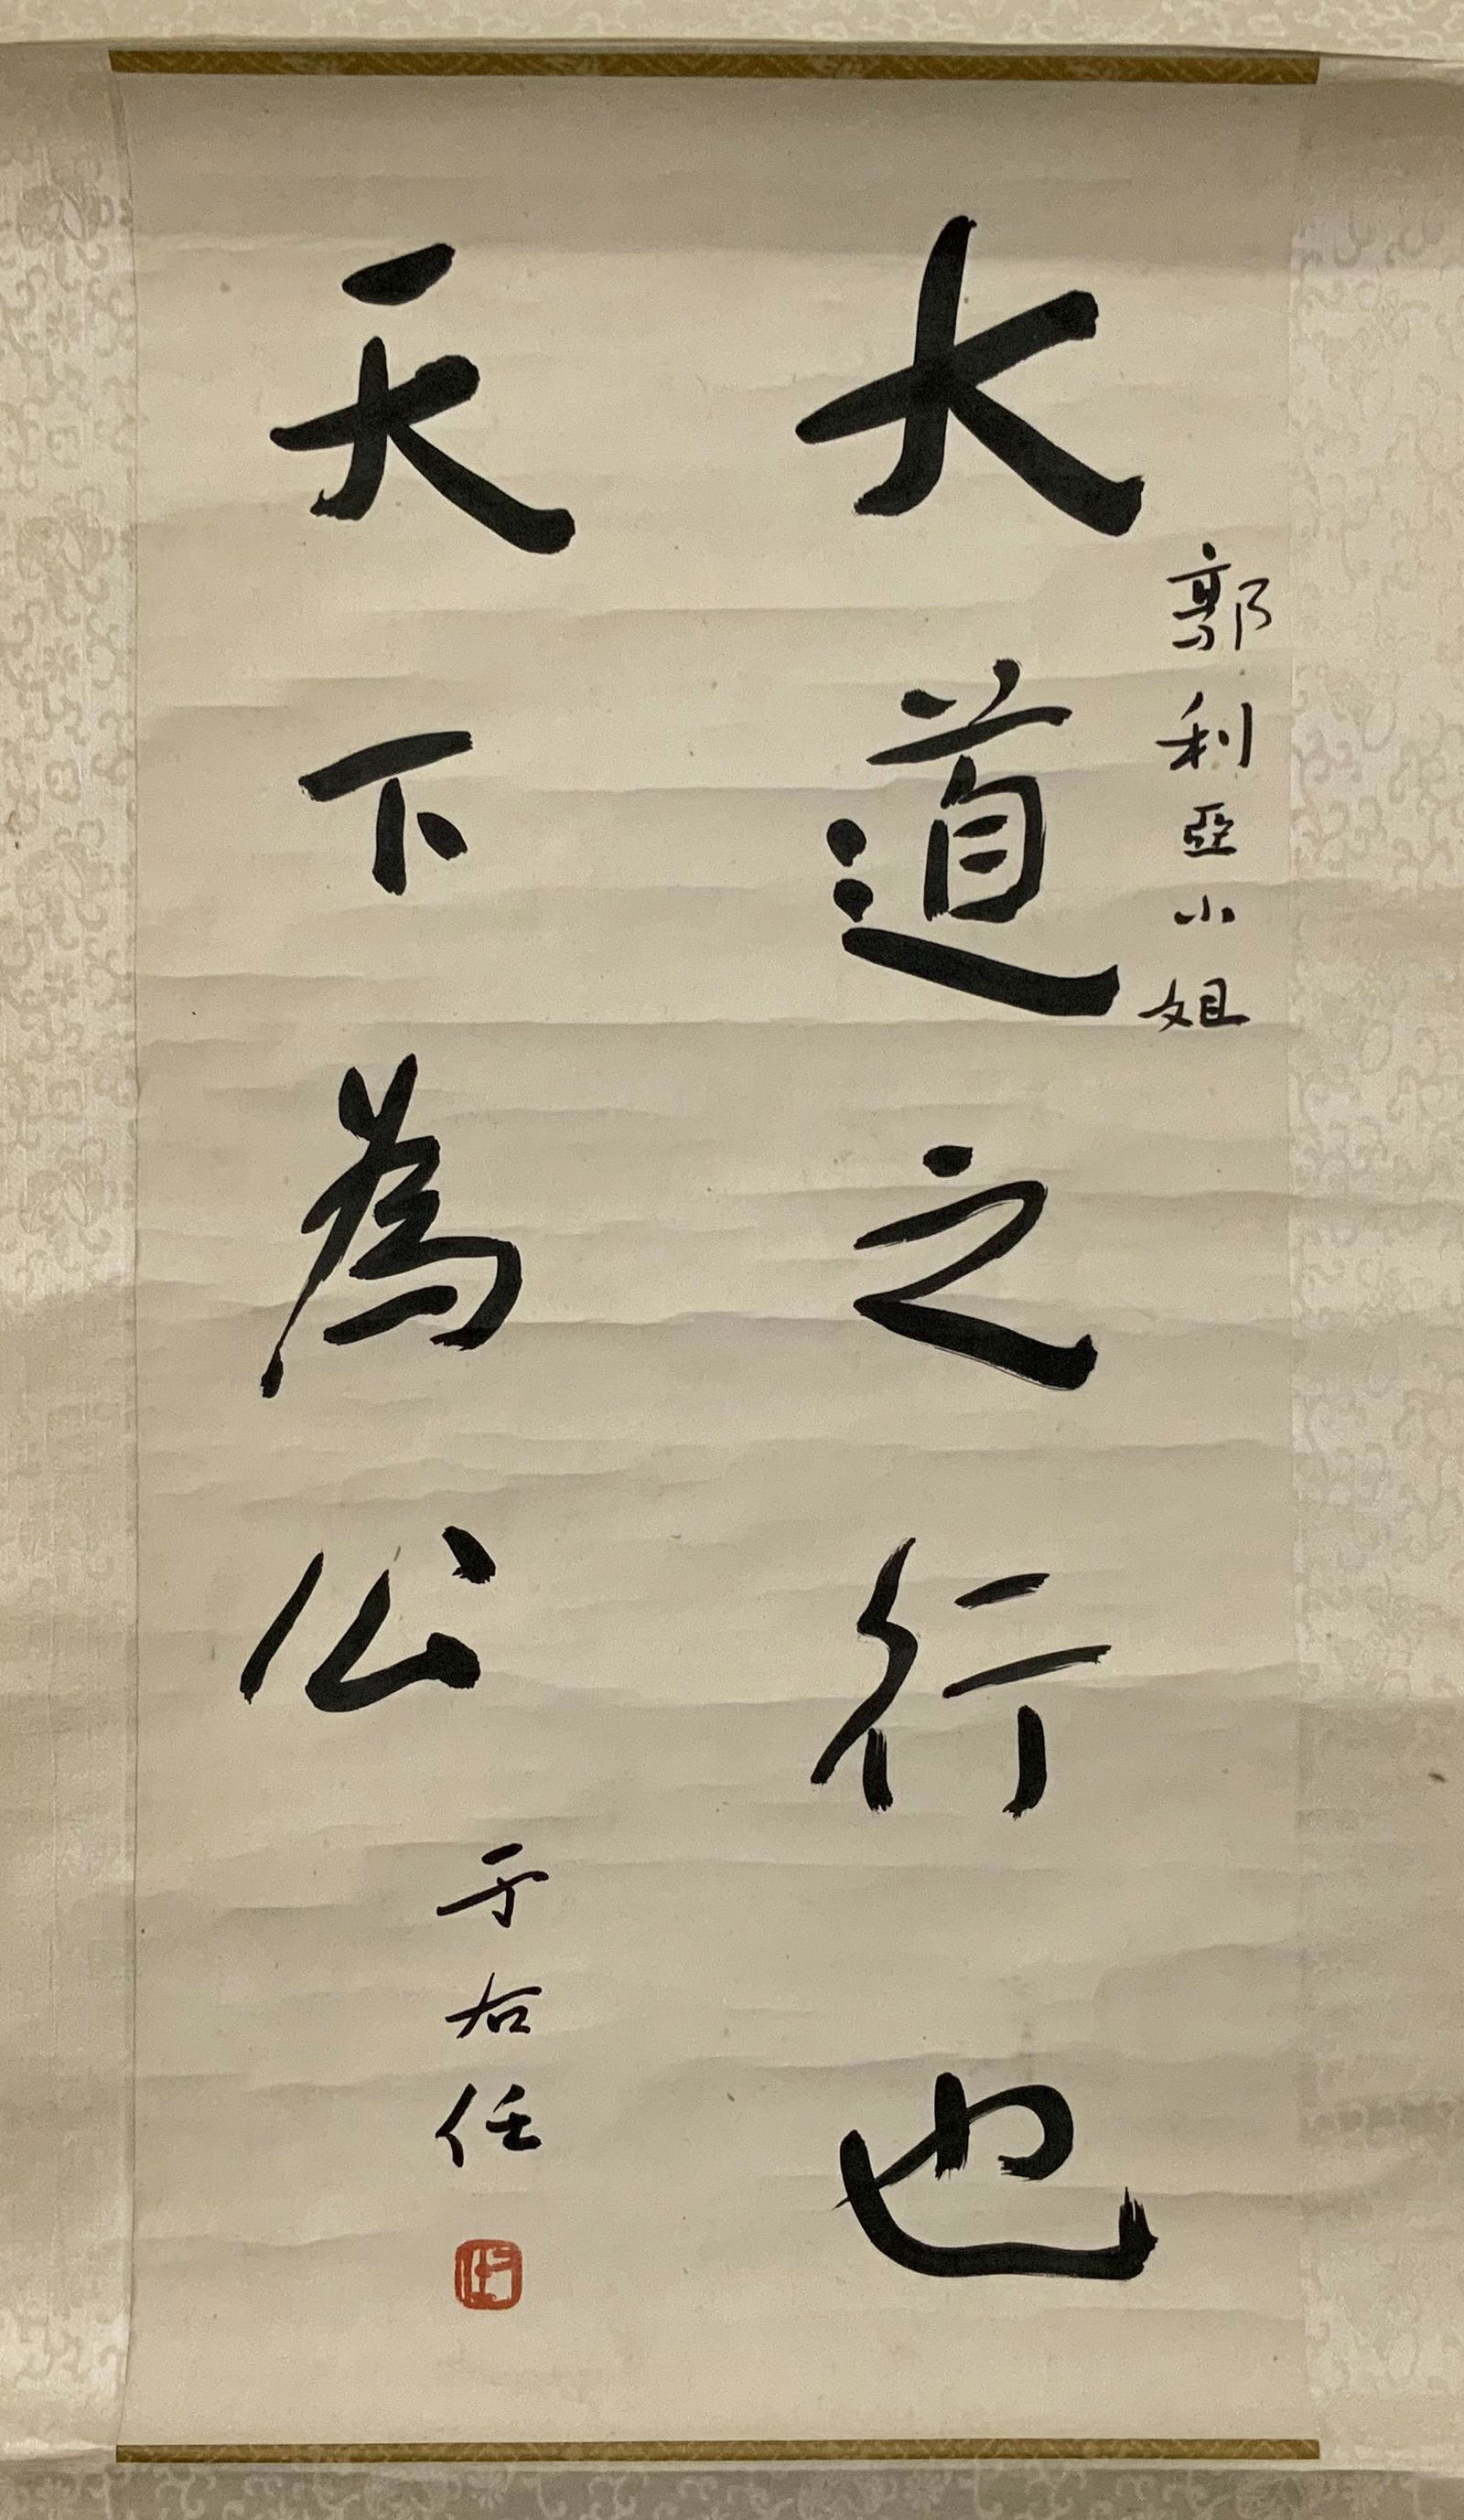 大道之行也
郭利亞小姐
天下為公
于右任